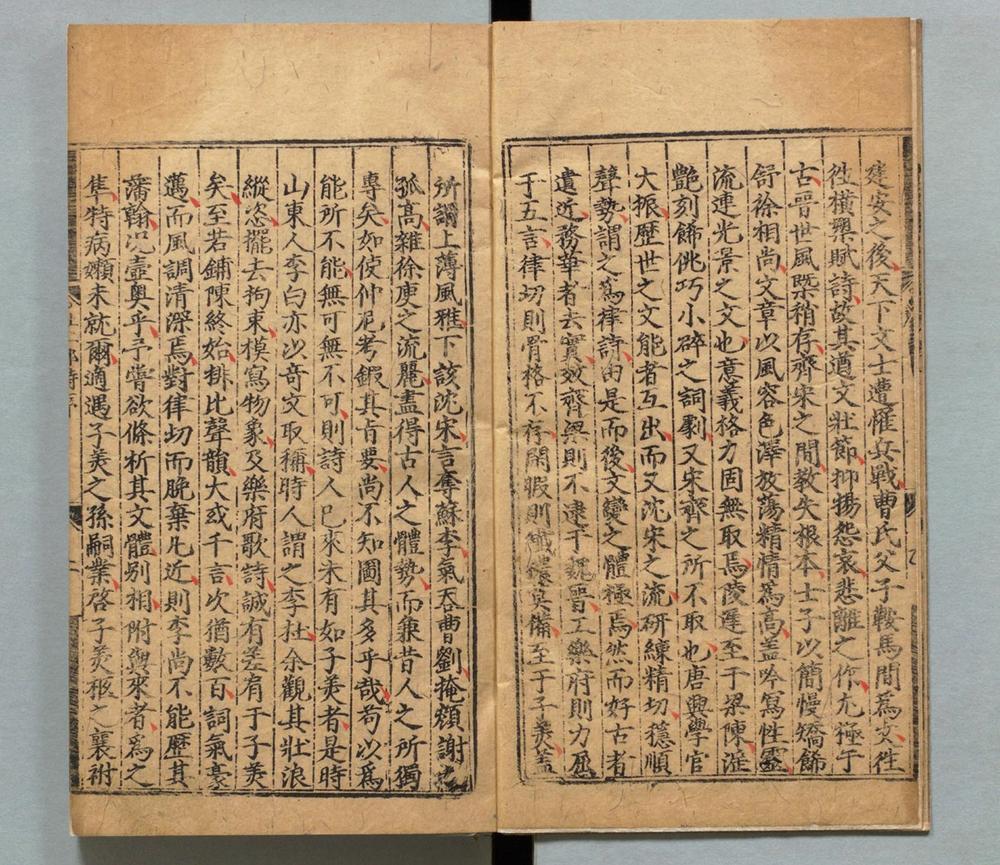 建安之後天下文士遭罹兵戰曹氏父子鞍馬間為文徃
徃橫槊賦詩故其遒文壯節抑揚怨哀悲離之作尤極于
古晉世風槩稍存齊宋之間教失根本士子以簡慢矯飾
舒徐相尚文章以風容色澤放蕩精情為高盖吟寫性靈
流連光景之文也意義格力固無取焉陵遲至于梁陳淫
艷刻飾佻巧小碎之詞劇又宋齊之所不取也唐興學官
大振歷世之文能者互出而又沈宋之流研練精切穩順
聲勢謂之為律詩由是而後文變之體極焉然而好古者
遺近務華者去實效齊梁則不逮于魏晉工樂府則力屈
于五言律切則骨格不存閑暇則纖穠莫備至于子美盖
所謂上薄風雅下該沈宋言奪蘇李氣吞曹劉掩顏謝之
孤高雜徐庾之流麗盡得古人之體勢而兼昔人之所獨
專矣如使仲尼考鍛其旨要尚不知圖其多乎哉苟以為
能所不能無可無不可則詩人已來未有如子美者是時
山東人李白亦以奇文取稱時人謂之李杜余觀其壯浪
縱恣擺去拘束模寫物象及樂府歌詩誠有差肩于子美
矣至若鋪陳終始排比聲韻大或千言次猶數百詞氣豪
邁而風調清深焉對律切而脫棄凡近則李尚不能歷其
藩翰况壺奥乎予嘗欲條析其文體別相附與來者為之
隼特病嬾未就爾適遇子美之孫嗣業啓子美柩之襄祔